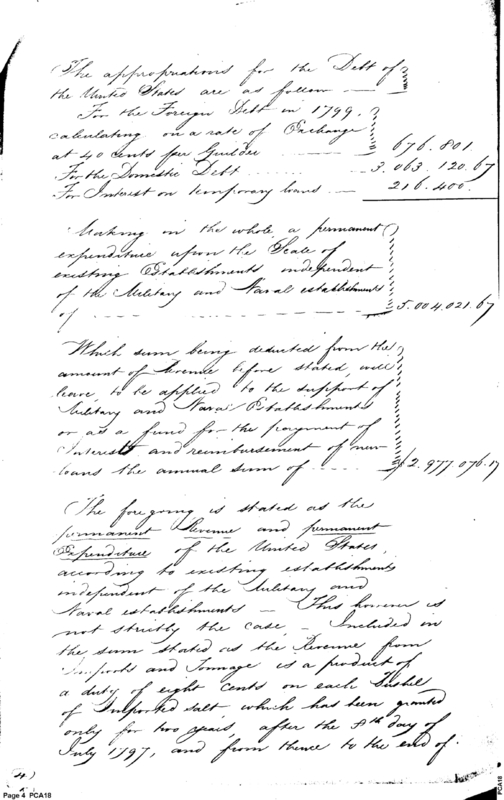 The appropriations for the Debt of
the United States are as follow —
For the Foreign Debt in 1799,
calculating on a rate of Exchange
at 40 cents per Guilder 676.801
For the Domestic Debt 3.063.120.67
For Interest on temporary loans — 216.400.
Making in the whole a permanent
expenditure upon the Scale of
existing Establishments independent
of the Military and Naval establishments
of 5.004.021.67
Which sum being deducted from the
amount of Revenue before stated, will
leave, to be applied to the support of
Military and Naval Establishments
or as a fund for the payment of
Interest and reimbursement of new
loans the annual sum of 2.977.076.17
The foregoing is stated as the
permanent Revenue and permanent
Expenditure of the United States,
according to existing establishments
independent of the Military and
Naval establishments — This however is
not strictly the case — Included in
the sum stated as the Revenue from
Imposts and Tonnage is a product of
a duty of eight cents on each Bushel
of Imported Salt which has been granted
only for two years, after the 8th day of
July 1797, and from thence to the end of
4)
Page 4 PCA18
PCA18